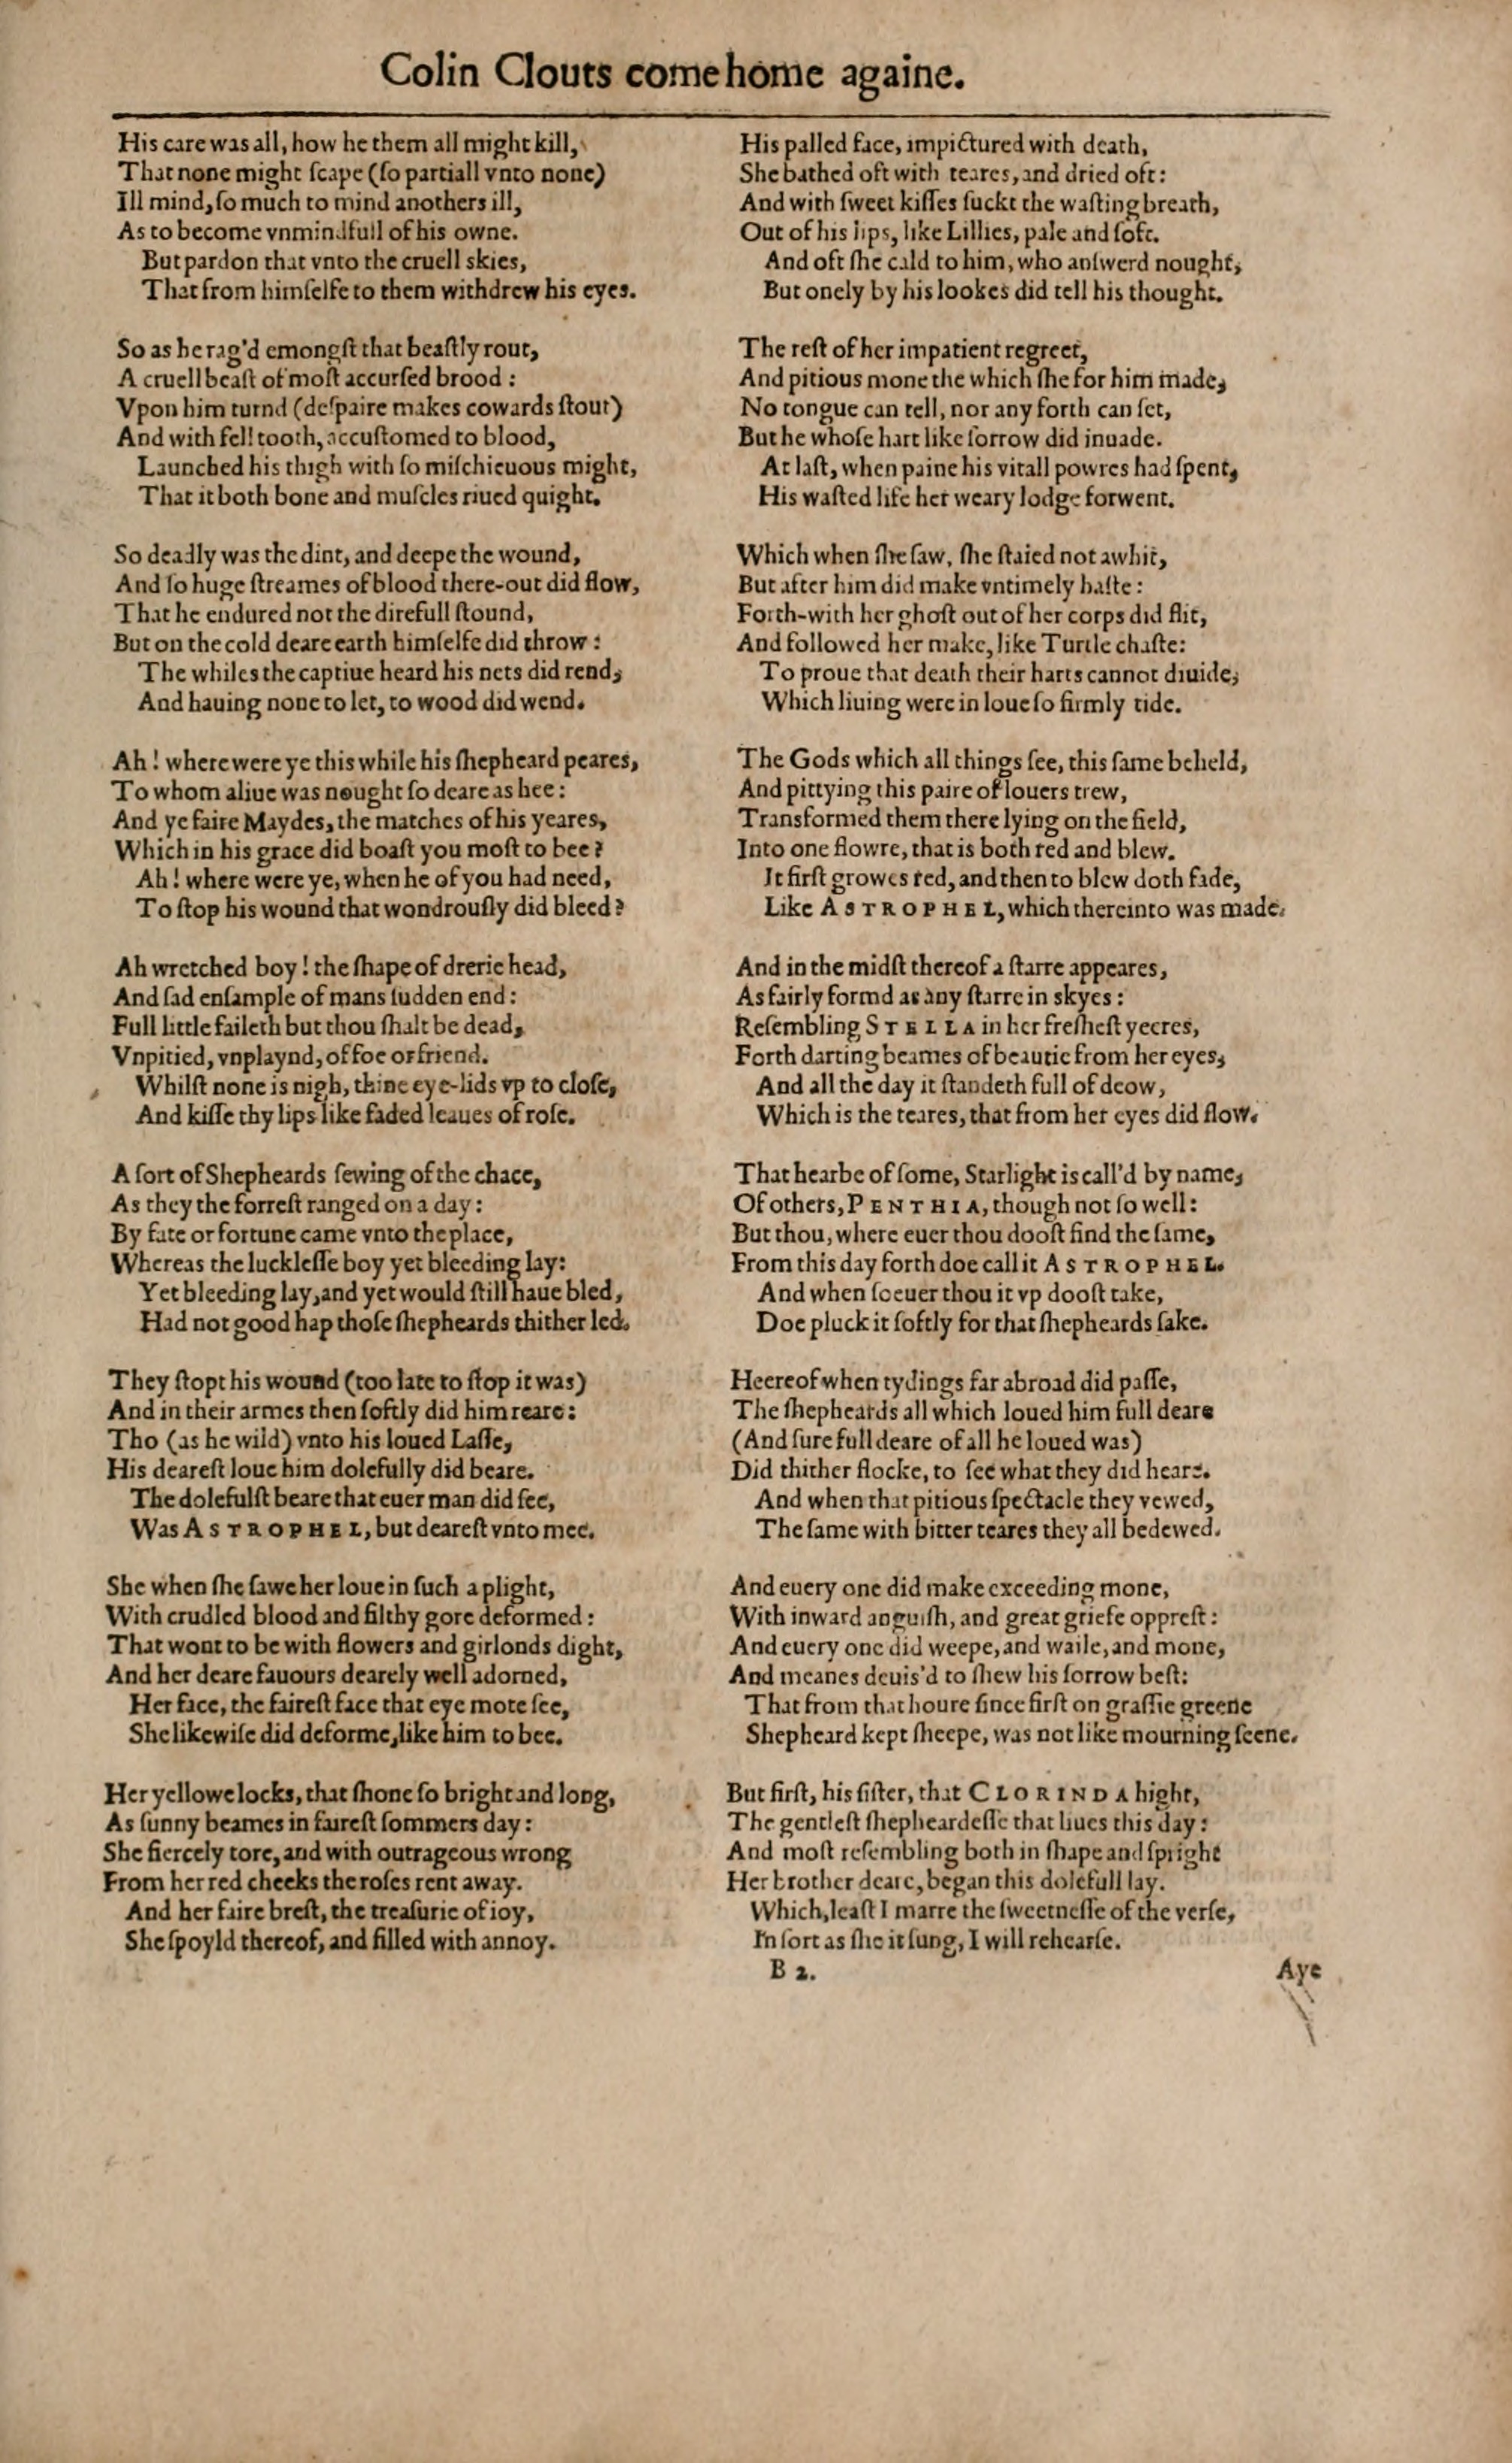 Colin Clouts come home againe.
His care was all, how he them all might kill,
That none might ſcape (ſo partiall vnto none)
Ill mind, ſo much to mind anothers ill,
As to become vnmindfull of his owne.
But pardon that vnto the cruell skies,
That from himſelfe to them withdrew his eyes.
So as he rag'd emongſt that beaſtly rout,
A cruell beaſt of moſt accurſed brood:
Vpon him turnd (deſpaire makes cowards ſtout)
And with fell tooth, accuſtomed to blood,
Launched his thigh with ſo miſchieuous might,
That it both bone and muſcles riued quight.
So deadly was the dint, and deepe the wound,
And ſo huge ſtreames of blood there-out did flow,
That he endured not the direfull ſtound,
But on the cold deare earth himſelfe did throw:
The whiles the captiue heard his nets did rend,
And hauing none to let, to wood did wend.
Ah! where were ye this while his ſhepheard peares,
To whom aliue was nought ſo deare as hee:
And ye faire Maydes, the matches of his yeares,
Which in his grace did boaſt you moſt to bee?
Ah! where were ye, when he of you had need,
To ſtop his wound that wondrouſly did bleed?
Ah wretched boy! the ſhape of drerie head,
And ſad enſample of mans ſudden end:
Full little faileth but thou ſhalt be dead,
Vnpitied, vnplaynd, of foe or friend.
Whilſt none is nigh, thine eye-lids vp to cloſe,
And kiſſe thy lips like faded leaues of roſe.
A ſort of Shepheards ſewing of the chace,
As they the forreſt ranged on a day:
By fate or fortune came vnto the place,
Whereas the luckleſſe boy yet bleeding lay:
Yet bleeding lay, and yet would ſtill haue bled,
Had not good hap thoſe ſhepheards thither led.
They ſtopt his wound (too late to ſtop it was)
And in their armes then ſoftly did him reare:
Tho (as he wild) vnto his loued Laſſe,
His deareſt loue him dolefully did beare.
The dolefulſt beare that euer man did ſee,
Was ASTROPHEL, but deareſt vnto mee.
She when ſhe ſawe her loue in ſuch a plight,
With crudled blood and filthy gore deformed:
That wont to be with flowers and girlonds dight,
And her deare fauours dearely well adorned,
Her face, the faireſt face that eye mote ſee,
She likewiſe did deforme, like him to bee.
Her yellowe locks, that ſhone ſo bright and long,
As ſunny beames in faireſt ſommers day:
She fiercely tore, and with outrageous wrong
From her red cheeks the roſes rent away.
And her faire breſt, the treaſurie of ioy,
She ſpoyld thereof, and filled with annoy.
His palled face, impictured with death,
She bathed oft with teares, and dried oft:
And with ſweet kiſſes ſuckt the waſting breath,
Out of his lips, like Lillies, pale and ſoft.
And oft ſhe cald to him, who anſwerd nought,
But onely by his lookes did tell his thought.
The reſt of her impatient regreet,
And pitious mone the which ſhe for him made,
No tongue can tell, nor any forth can ſet,
But he whoſe hart like ſorrow did inuade.
At laſt, when paine his vitall powres had ſpent,
His waſted life her weary lodge forwent.
Which when ſhe ſaw, ſhe ſtaied not a whit,
But after him did make vntimely haſte:
Forth-with her ghoſt out of her corps did flit,
And followed her make, like Turtle chaſte:
To proue that death their harts cannot diuide,
Which liuing were in loue ſo firmly tide.
The Gods which all things ſee, this ſame beheld,
And pittying this paire of louers trew,
Transformed them there lying on the field,
Into one flowre, that is both red and blew.
It firſt growes red, and then to blew doth fade,
Like ASTROPHEL, which thereinto was made.
And in the midſt thereof a ſtarre appeares,
As fairly formd as any ſtarre in skyes:
Reſembling STELLA in her freſheſt yeeres,
Forth darting beames of beautie from her eyes,
And all the day it ſtandeth full of deow,
Which is the teares, that from her eyes did flow.
That hearbe of ſome, Starlight is call'd by name,
Of others, PENTHIA, though not ſo well:
But thou, where euer thou dooſt find the ſame,
From this day forth doe call it ASTROPHEL.
And when ſoeuer thou it vp dooſt take,
Doe pluck it ſoftly for that ſhepheards ſake.
Heereof when tydings far abroad did paſſe,
The ſhepheards all which loued him full deare
(And ſure full deare of all he loued was)
Did thither flocke, to ſee what they did heare.
And when that pitious ſpectacle they vewed,
The ſame with bitter teares they all bedewed.
And euery one did make exceeding mone,
With inward anguiſh, and great griefe oppreſt:
And euery one did weepe, and waile, and mone,
And meanes deuis'd to ſhew his ſorrow beſt:
That from that houre ſince firſt on graſſie greene
Shepheard kept ſheepe, was not like mourning ſeene.
But firſt, his ſiſter, that CLORINDA hight,
The gentleſt ſhepheardeſſe that liues this day:
And moſt reſembling both in ſhape and ſpright
Her brother deare, began this dolefull lay.
Which, leaſt I marre the ſweetneſſe of the verſe,
In ſort as ſhe it ſung, I will rehearſe.
B 2.
Aye